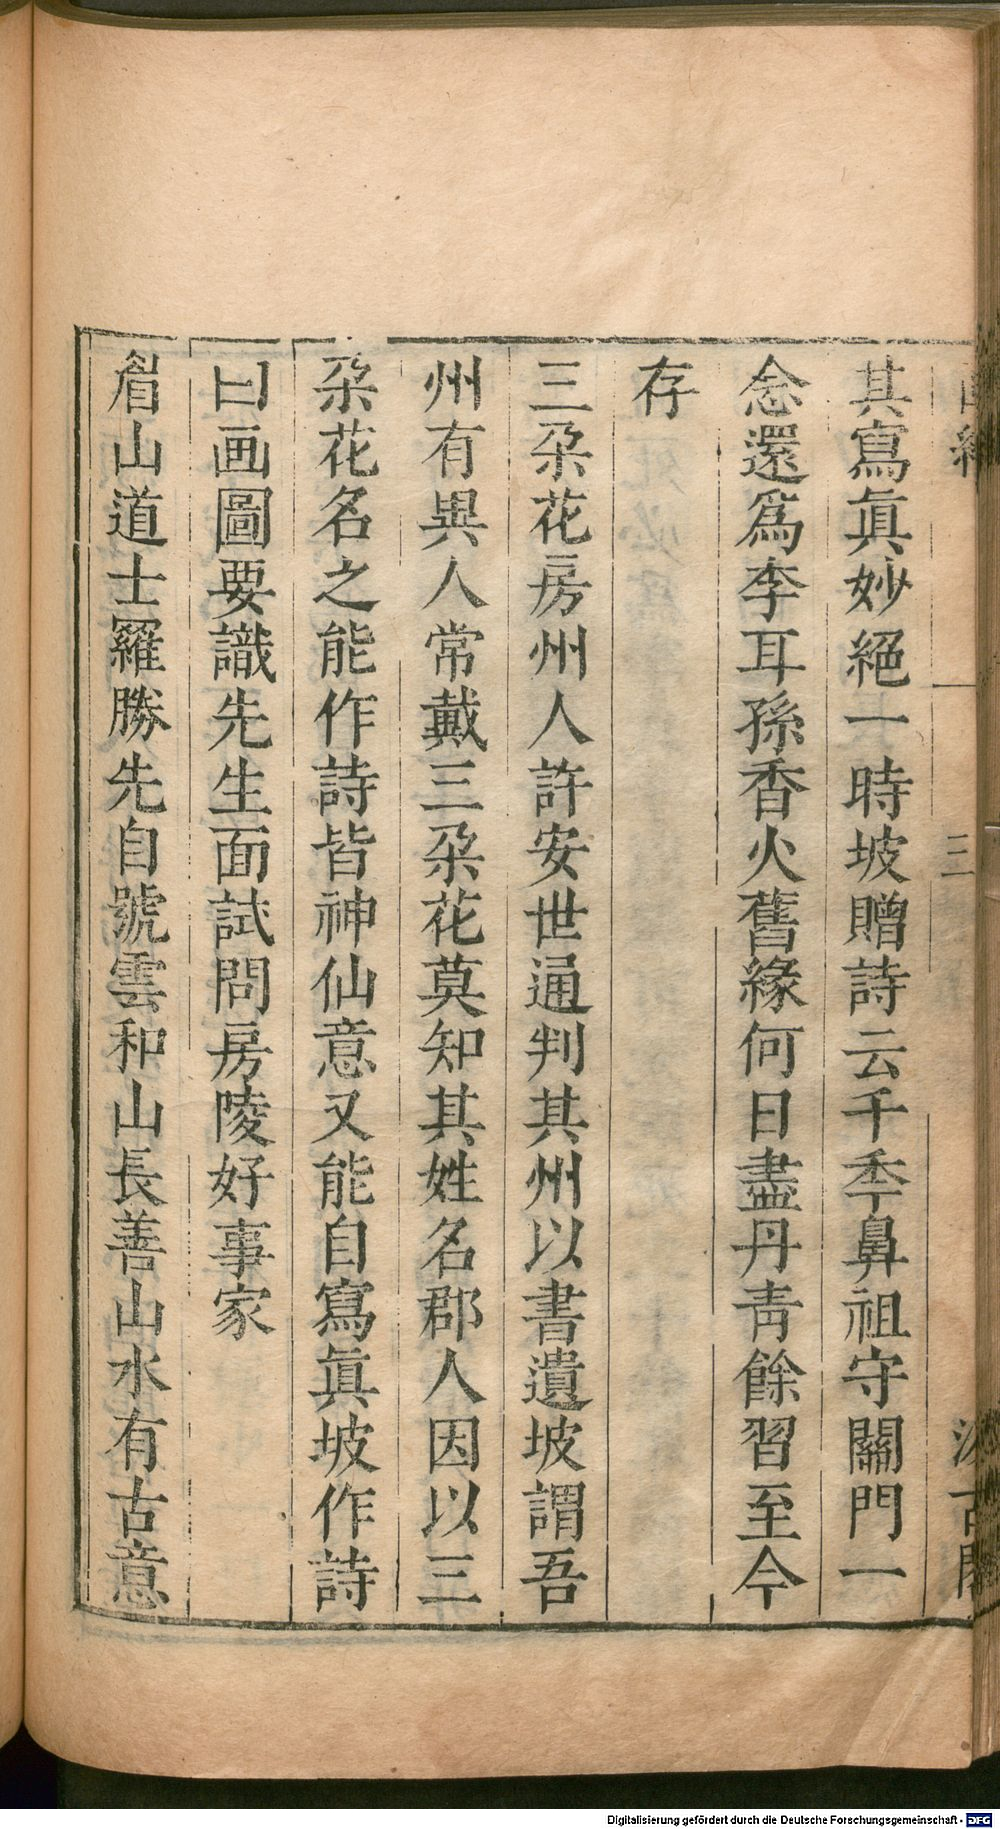 其寫眞妙絕一時坡贈詩云千秊鼻祖守關門一
念還爲李耳孫香火舊緣何日盡丹靑餘習至今
存
三朶花房州人許安世通判其州以書遺坡謂吾
州有異人常戴三朶花莫知其姓名郡人因以三
朶花名之能作詩皆神仙意又能自寫眞坡作詩
曰画圖要識先生面試問房陵好事家
眉山道士羅勝先自號雲和山長善山水有古意
三
Digitalisierung gefördert durch die Deutsche Forschungsgemeinschaft - DFG